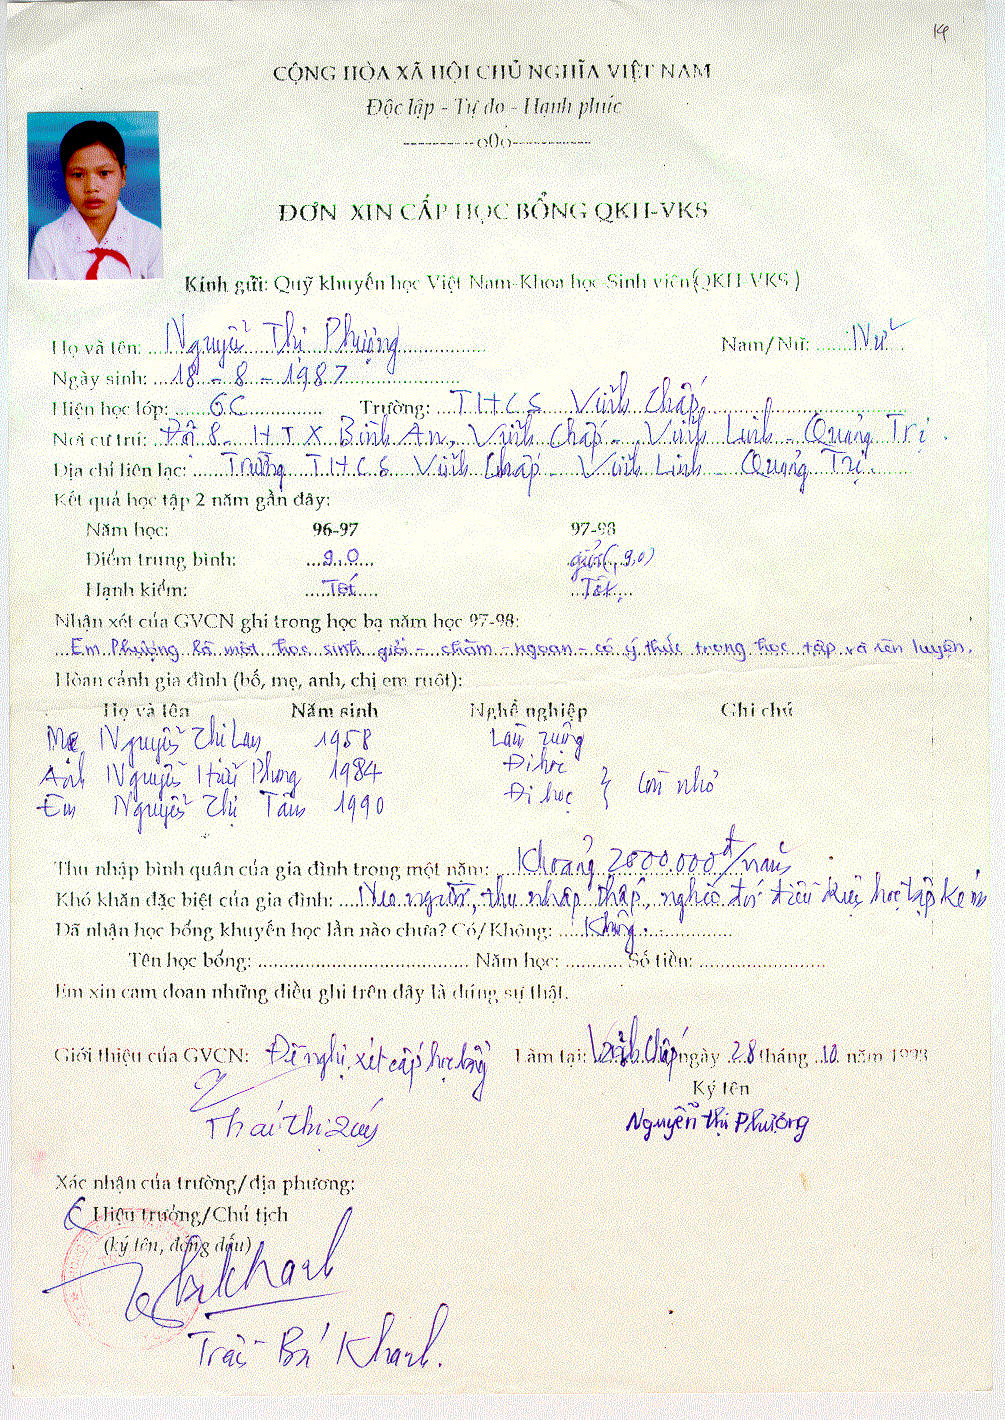 14
CỘNG HÒA XÃ HỘI CHỦ NGHĨA VIỆT NAM
Độc lập - Tự do - Hạnh phúc
----------o0o-----------
ĐƠN XIN CẤP HỌC BỔNG QKH-VKS
Kính gửi: Quỹ khuyến học Việt Nam-Khoa học Sinh viên (QKH-VKS)
Họ và tên: Nguyễn Thị Phượng Nam/Nữ: Nữ
Ngày sinh: 18 - 8 - 1987
Hiện học lớp: 6C Trường: THCS Vĩnh Chấp
Nơi cư trú: Đội 8 - HTX Bình An, Vĩnh Chấp - Vĩnh Linh - Quảng Trị.
Địa chỉ liên lạc: Trường THCS Vĩnh Chấp - Vĩnh Linh - Quảng Trị.
Kết quả học tập 2 năm gần đây:
Năm học: 96-97 97-98
Điểm trung bình: 9,0 giỏi (9,0)
Hạnh kiểm: Tốt Tốt
Nhận xét của GVCN ghi trong học bạ năm học 97-98:
Em Phượng là một học sinh giỏi - chăm - ngoan - có ý thức trong học tập và rèn luyện.
Hoàn cảnh gia đình (bố, mẹ, anh, chị em ruột):
Họ và tên Năm sinh Nghề nghiệp Ghi chú
Mẹ Nguyễn Thị Lan 1958 Làm ruộng
Anh Nguyễn Hữu Phong 1984 Đi học
Em Nguyễn Thị Tâm 1990 Đi học } Còn nhỏ
Thu nhập bình quân của gia đình trong một năm: Khoảng 2800.000đ/năm
Khó khăn đặc biệt của gia đình: Neo người, thu nhập thấp, nghèo đói điều kiện học tập kém
Đã nhận học bổng khuyến học lần nào chưa? Có/Không: Không.
Tên học bổng: ................ Năm học: .......... Số tiền: ................
Em xin cam đoan những điều ghi trên đây là đúng sự thật.
Giới thiệu của GVCN: Đề nghị xét cấp học bổng Làm tại: Vĩnh Chấp ngày 28 tháng 10 năm 1998
Ký tên
Thái Thị Quý Nguyễn Thị Phượng
Xác nhận của trường/địa phương:
Hiệu trưởng/Chủ tịch
(ký tên, đóng dấu)
Trần Bá Khanh.